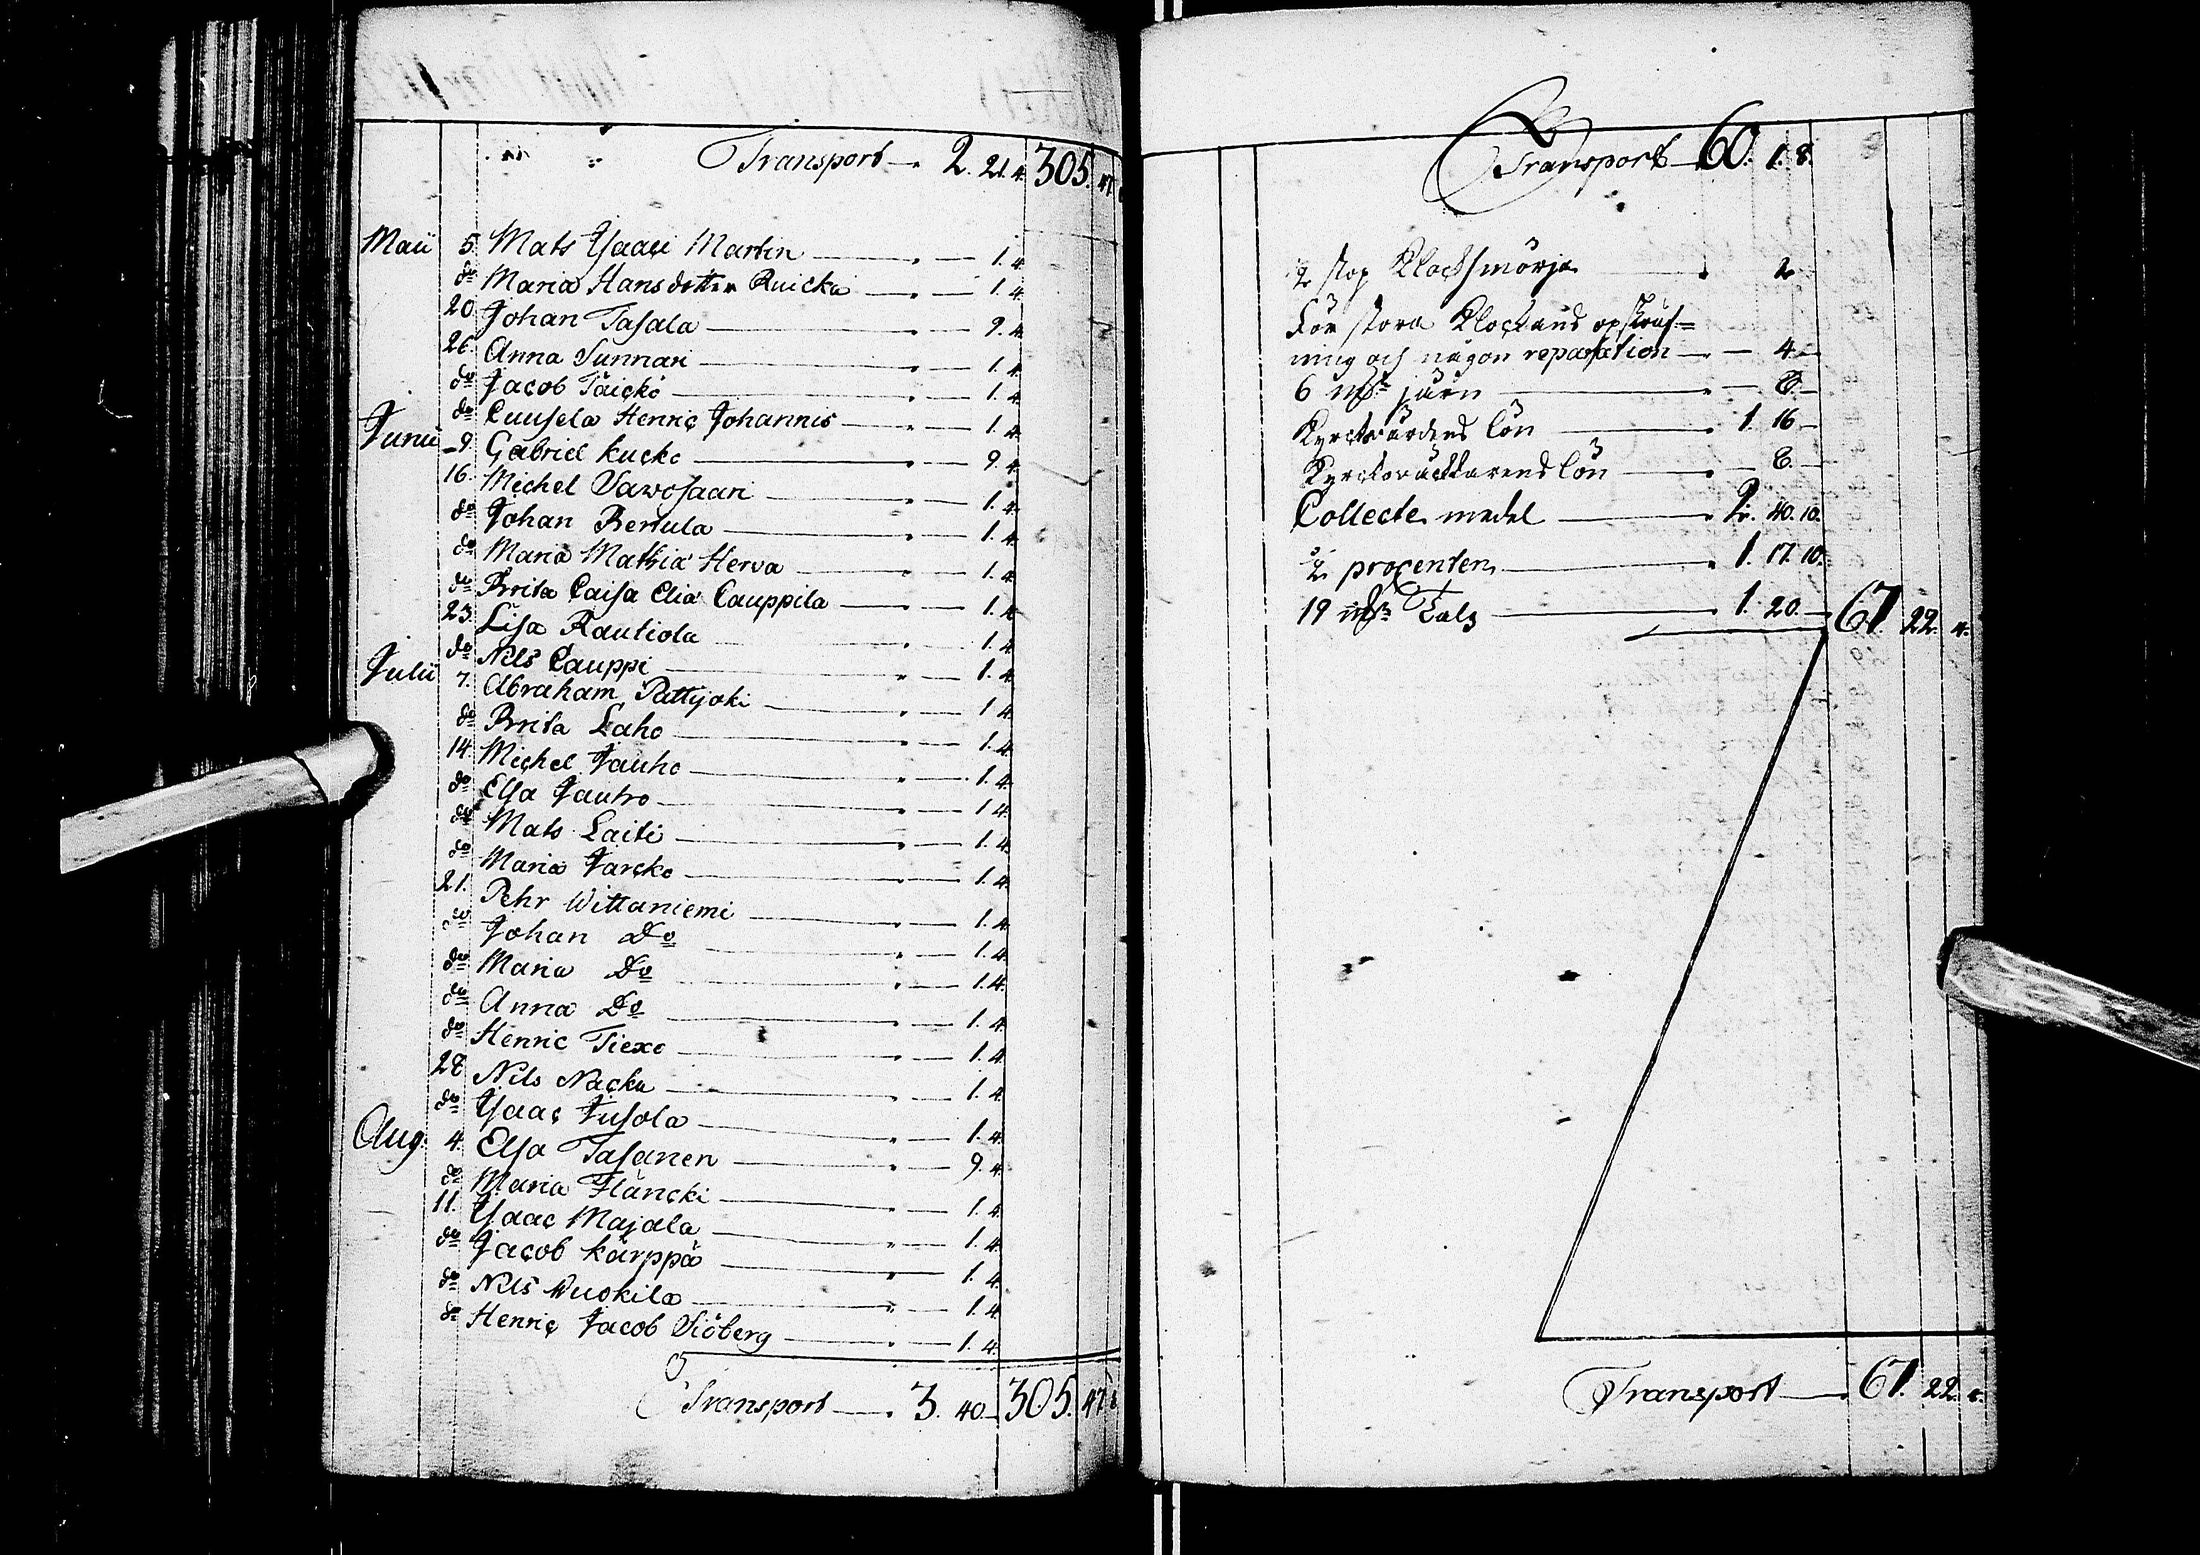 Transport 2. 21. 4. 305. 47.
Maii 5. Mats Ysaac Martin 1. 4.
do Maria Hansdotter Ruicka 1. 4.
20. Johan Tasala 9. 4.
26. Anna Sunnari 1. 4.
do Jacob Täickö 1. 4.
do Cuusela Henric Johannis 1. 4.
Junii 9. Gabriel kucko 9. 4.
16. Michel Sawosaari 1. 4.
do Johan Rentula 1. 4.
do Maria Mathiæ Herva 1. 4.
do Brita Caisa Eliæ Cauppila 1. 4.
23. Lisa Rautiola 1. 4.
do Nils Cauppi 1. 4.
Julii 7. Abraham Pattijoki 1. 4.
do Brita Laho 1. 4.
14. Michel Jauho 1. 4.
do Elsa Jauho 1. 4.
do Mats Laiti 1. 4.
do Maria Jarcko 1. 4.
21. Pehr Wittaniemi 1. 4.
do Johan Do 1. 4.
do Maria Do 1. 4.
do Anna Do 1. 4.
do Henric Tiexo 1. 4.
28 Nils Nacku 1. 4.
do Ysaac Jusola 1. 4.
Aug. 4. Elsa Tasanen 9. 4.
do Maria Fläncki 1. 4.
11. Ysaac Majala 1. 4.
do Jacob kärppä 1. 4.
do Nils Wuokila 1. 4.
do Henric Jacob Siöberg 1. 4.
Transport 3. 40. 305. 47. 8
Transport 60. 1. 8.
2 stop Klocksmörja 2
För stora Klockans opskruf=
ning och någon reparation 4.
6 järn 8.
Kyrckwärdens lön 1. 16
Kyrckowäcktarens lön 8.
Collecte medel 2. 40. 10.
2 procenten 1. 17. 10.
19 Talg 1. 20. 67. 22. 4.
Transport 67. 22.